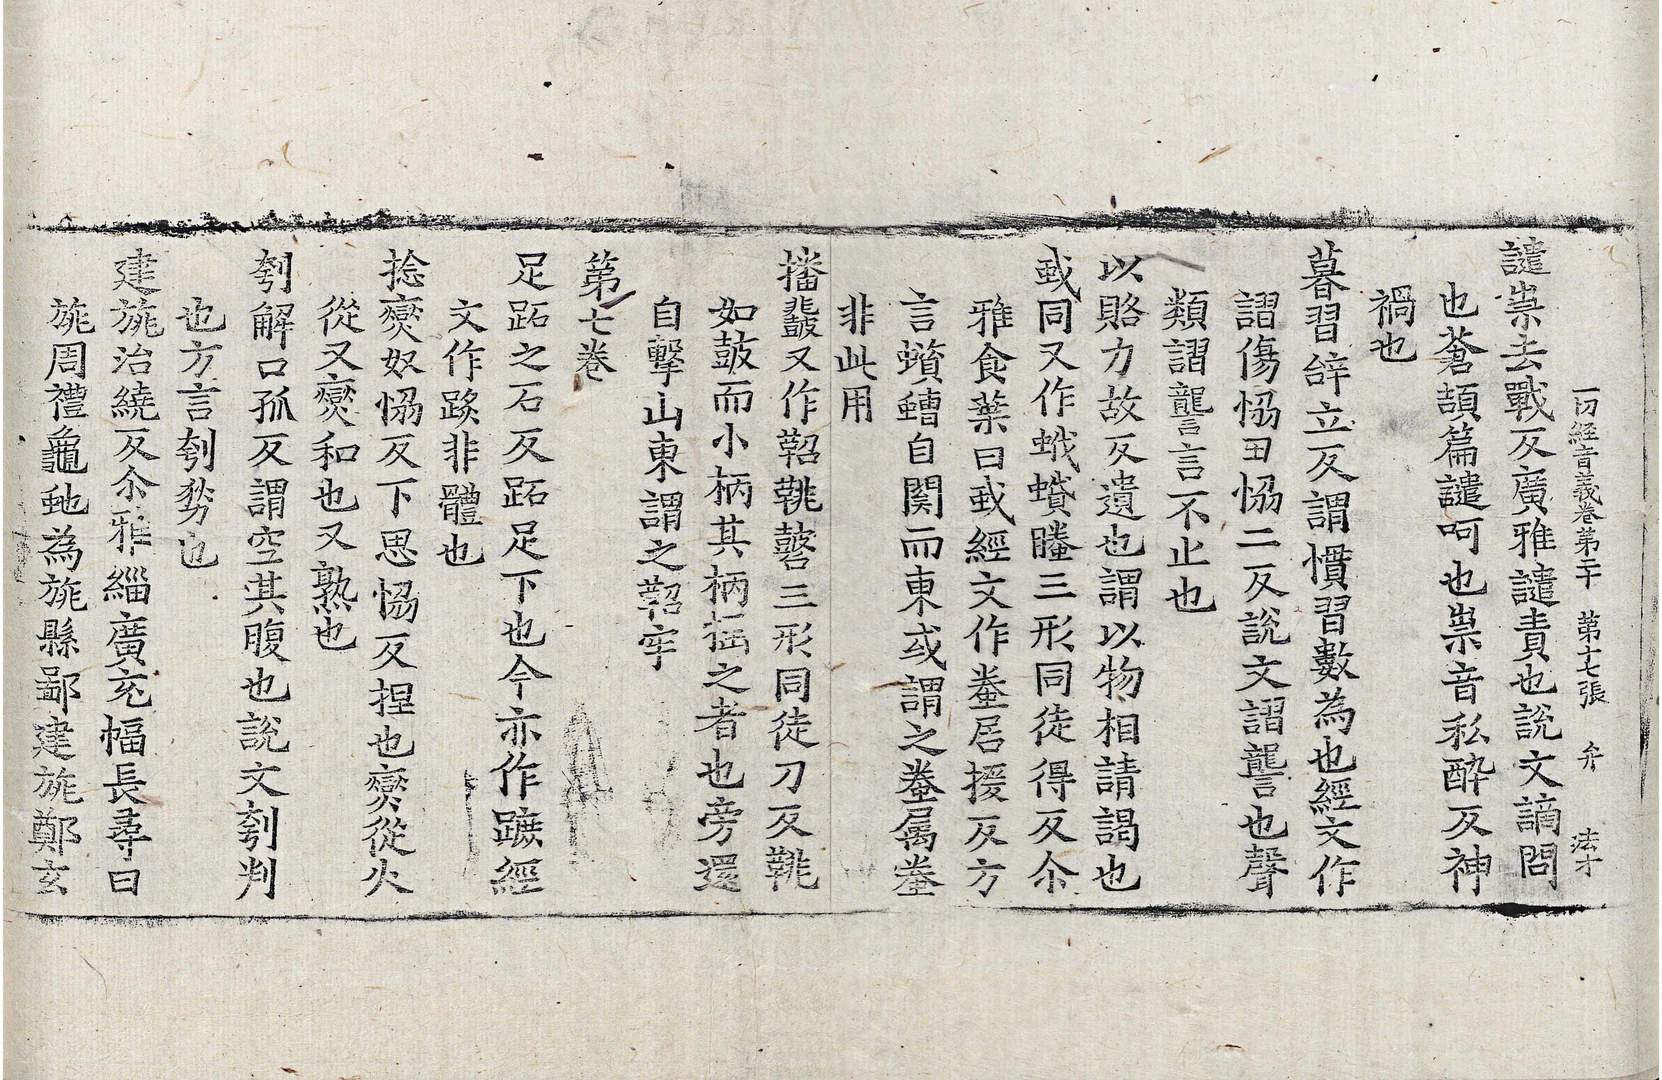 一切經音義卷第二十 第十七張 弁 法才
譴祟去戰反廣雅譴責也說文謫問
也蒼頡篇譴呵也祟音私醉反神
禍也
暮習辝立反謂慣習數為也經文作
謵傷協田協二反說文謵讋也聲
類謵讋言不止也
以賂力故反遺也謂以物相請謁也
蟘同又作蛾蟦螣三形同徒得反尒
雅食葉曰蟘經文作蠜居援反方
言蠀螬自関而東或謂之蠜蠾蠜
非此用
播鼗又作鞀鞉磬三形同徒刀反鞉
如鼓而小柄其柄搖之者也旁還
自擊山東謂之鞀牢
第七卷
足跖之石反跖足下也今亦作蹠經
文作跡非體也
捻燮奴協反下思協反捏也燮從火
從又燮和也又熟也
刳解口孤反謂空其腹也說文刳判
也方言刳剺也
建旐治繞反尒雅緇廣充幅長尋曰
旐周禮龜虵為旐縣鄙建旐鄭玄